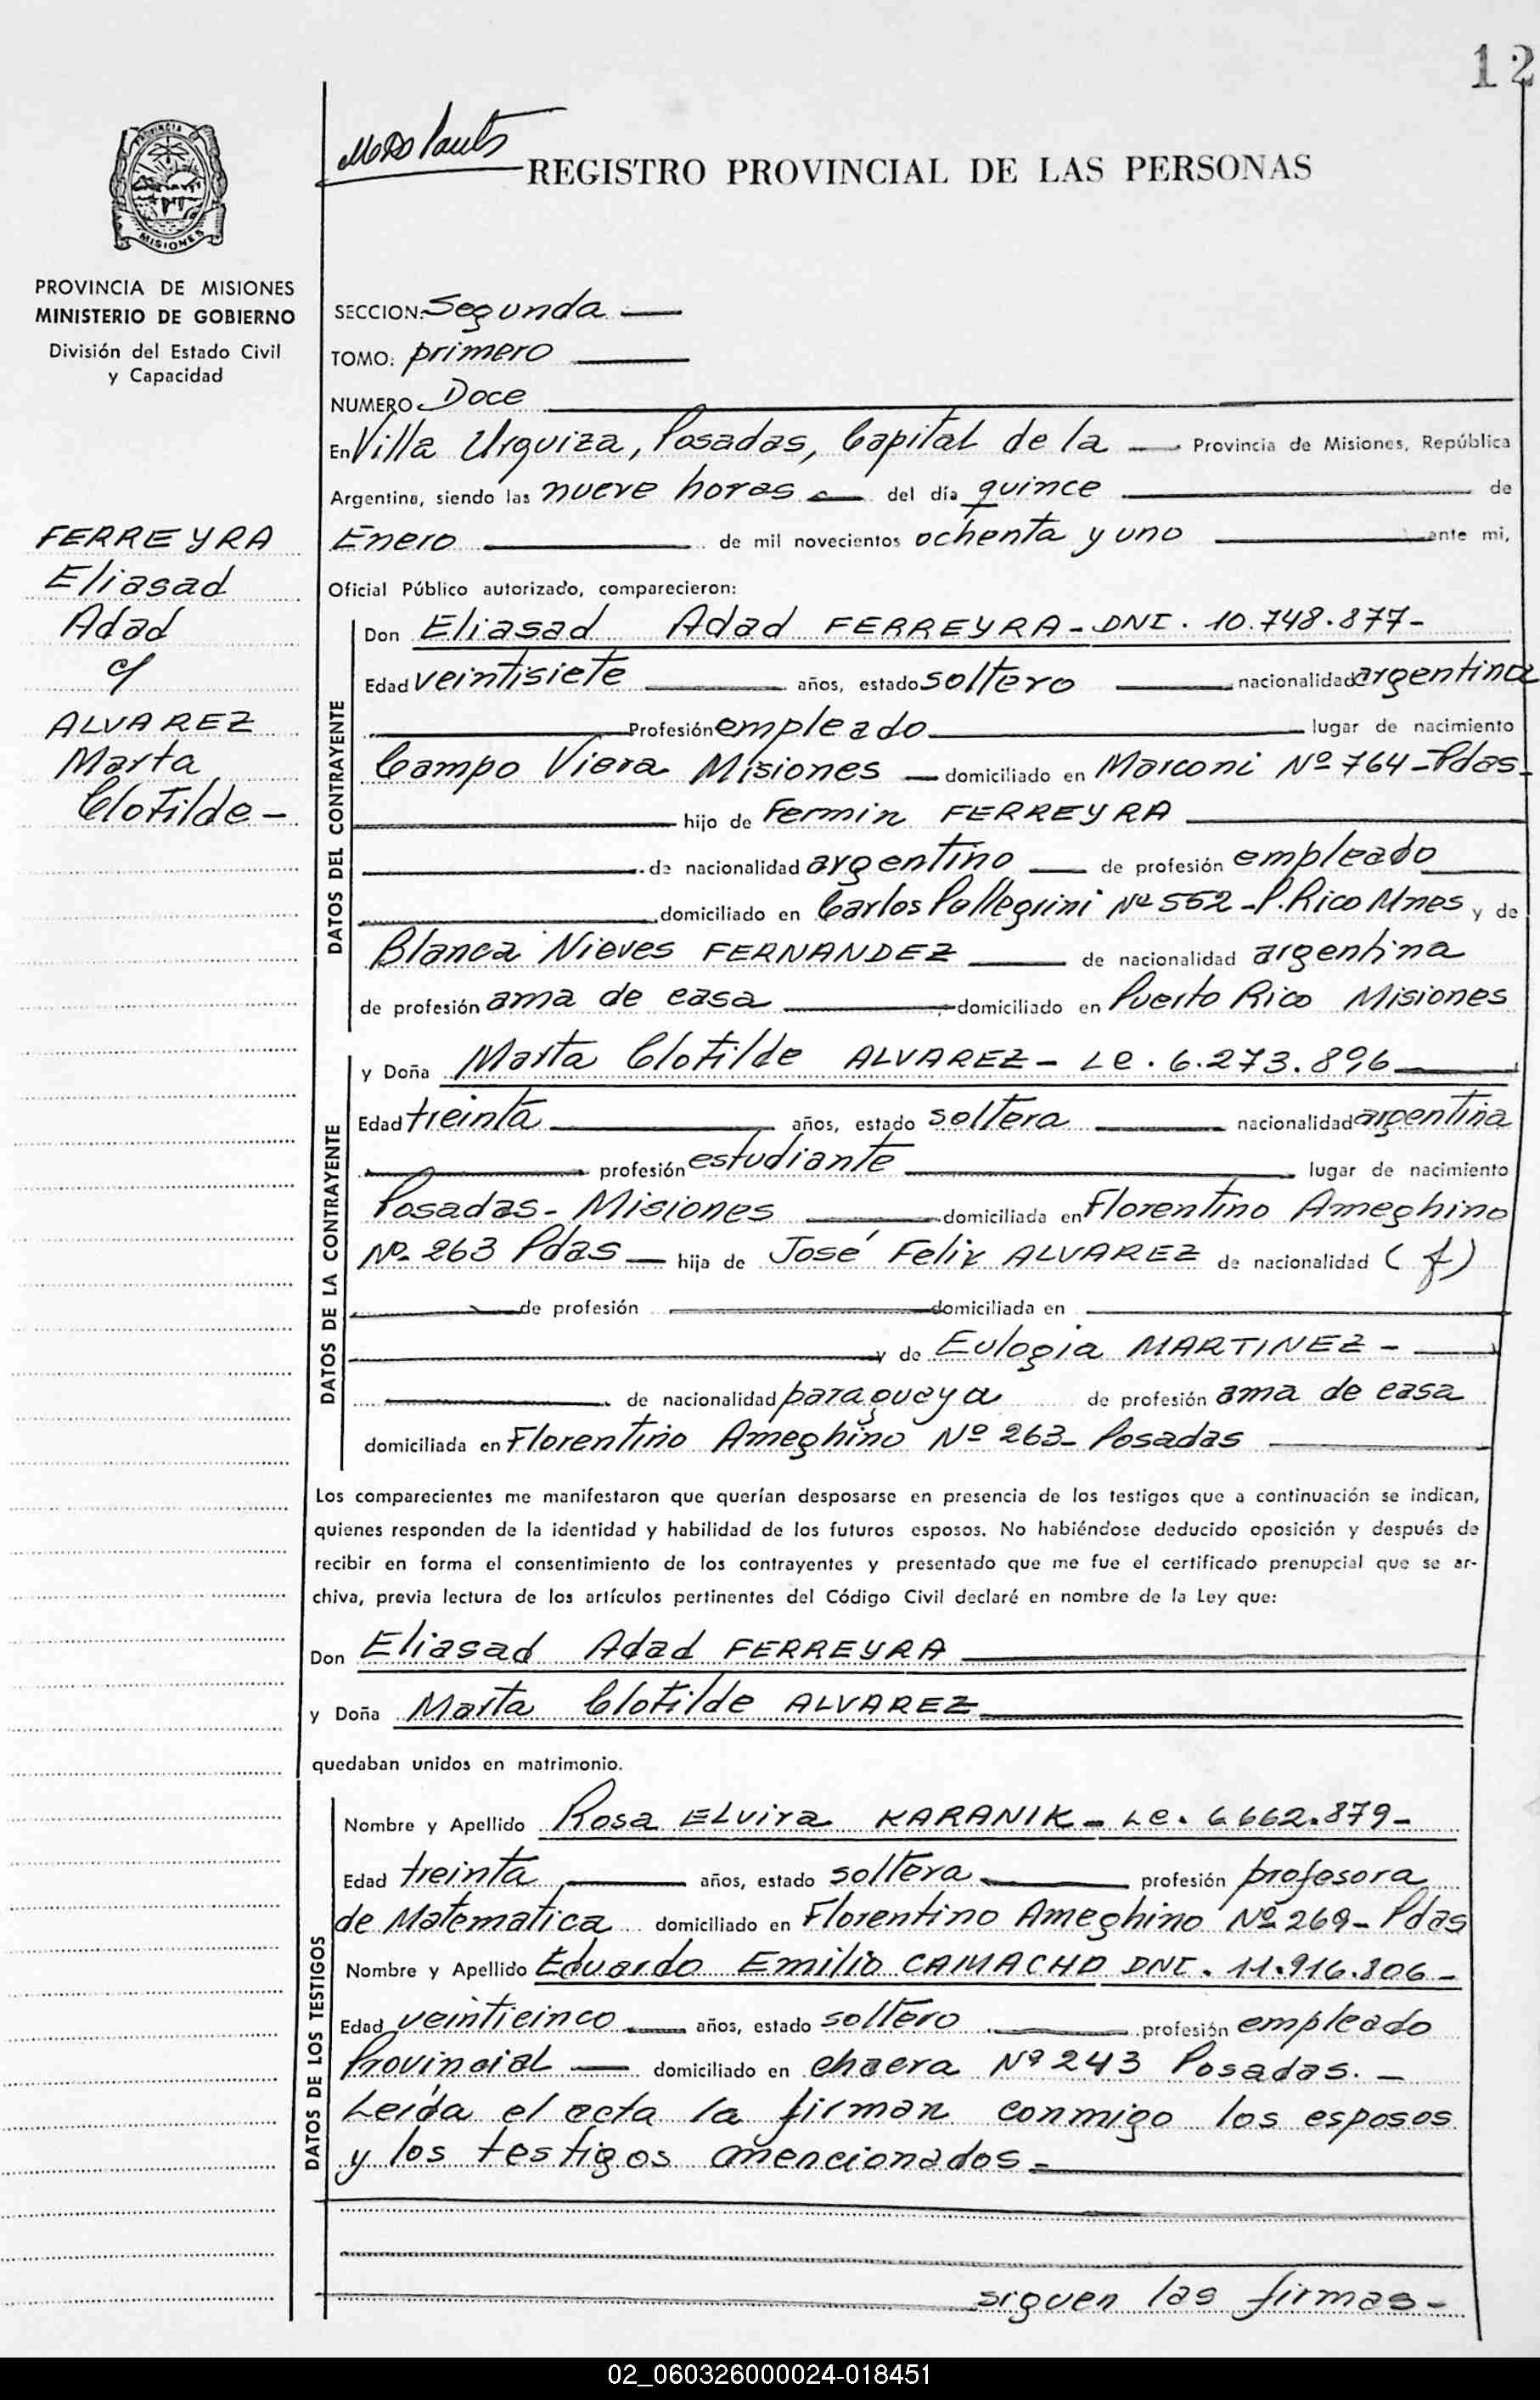 12
REGISTRO PROVINCIAL DE LAS PERSONAS
PROVINCIA
MISIONES
PROVINCIA DE MISIONES
MINISTERIO DE GOBIERNO
División del Estado Civil
y Capacidad
FERREYRA
Eliasad
Adad
c/
ALVAREZ
Marta
Clotilde -
SECCION: Segunda —
TOMO: primero —
NUMERO Doce —
En Villa Urquiza, Posadas, Capital de la — Provincia de Misiones, República
Argentina, siendo las nueve horas — del día quince — de
Enero — de mil novecientos ochenta y uno — ante mi,
Oficial Público autorizado, comparecieron:
DATOS DEL CONTRAYENTE
Don Eliasad Adad FERREYRA - DNI. 10.748.877-
Edad veintisiete — años, estado soltero — nacionalidad argentina
— Profesión empleado — lugar de nacimiento
Campo Viera Misiones — domiciliado en Marconi Nº 764 - Pdas -
— hijo de Fermin FERREYRA —
— de nacionalidad argentino — de profesión empleado —
— domiciliado en Carlos Pellegrini Nº 552 - P. Rico Mnes y de
Blanca Nieves FERNANDEZ — de nacionalidad argentina
de profesión ama de casa — domiciliado en Puerto Rico Misiones
DATOS DE LA CONTRAYENTE
y Doña Marta Clotilde ALVAREZ - Le. 6.273.896 —
Edad treinta — años, estado soltera — nacionalidad argentina
— profesión estudiante — lugar de nacimiento
Posadas - Misiones — domiciliada en Florentino Ameghino
Nº 263 Pdas — hija de José Felix ALVAREZ de nacionalidad (f)
— de profesión — domiciliada en —
— y de Eulogia MARTINEZ - —
— de nacionalidad paraguaya de profesión ama de casa
domiciliada en Florentino Ameghino Nº 263 - Posadas —
Los comparecientes me manifestaron que querían desposarse en presencia de los testigos que a continuación se indican,
quienes responden de la identidad y habilidad de los futuros esposos. No habiéndose deducido oposición y después de
recibir en forma el consentimiento de los contrayentes y presentado que me fue el certificado prenupcial que se ar-
chiva, previa lectura de los artículos pertinentes del Código Civil declaré en nombre de la Ley que:
Don Eliasad Adad FERREYRA —
y Doña Marta Clotilde ALVAREZ —
quedaban unidos en matrimonio.
DATOS DE LOS TESTIGOS
Nombre y Apellido Rosa Elvira KARANIK - Le. 6.662.879 -
Edad treinta — años, estado soltera — profesión profesora
de Matematica domiciliado en Florentino Ameghino Nº 269 - Pdas
Nombre y Apellido Eduardo Emilio CAMACHO DNI. 11.916.806 -
Edad veinticinco — años, estado soltero — profesión empleado
Provincial — domiciliado en chacra Nº 243 Posadas. -
Leída el acta la firman conmigo los esposos
y los testigos mencionados -
siguen las firmas -
02_060326000024-018451